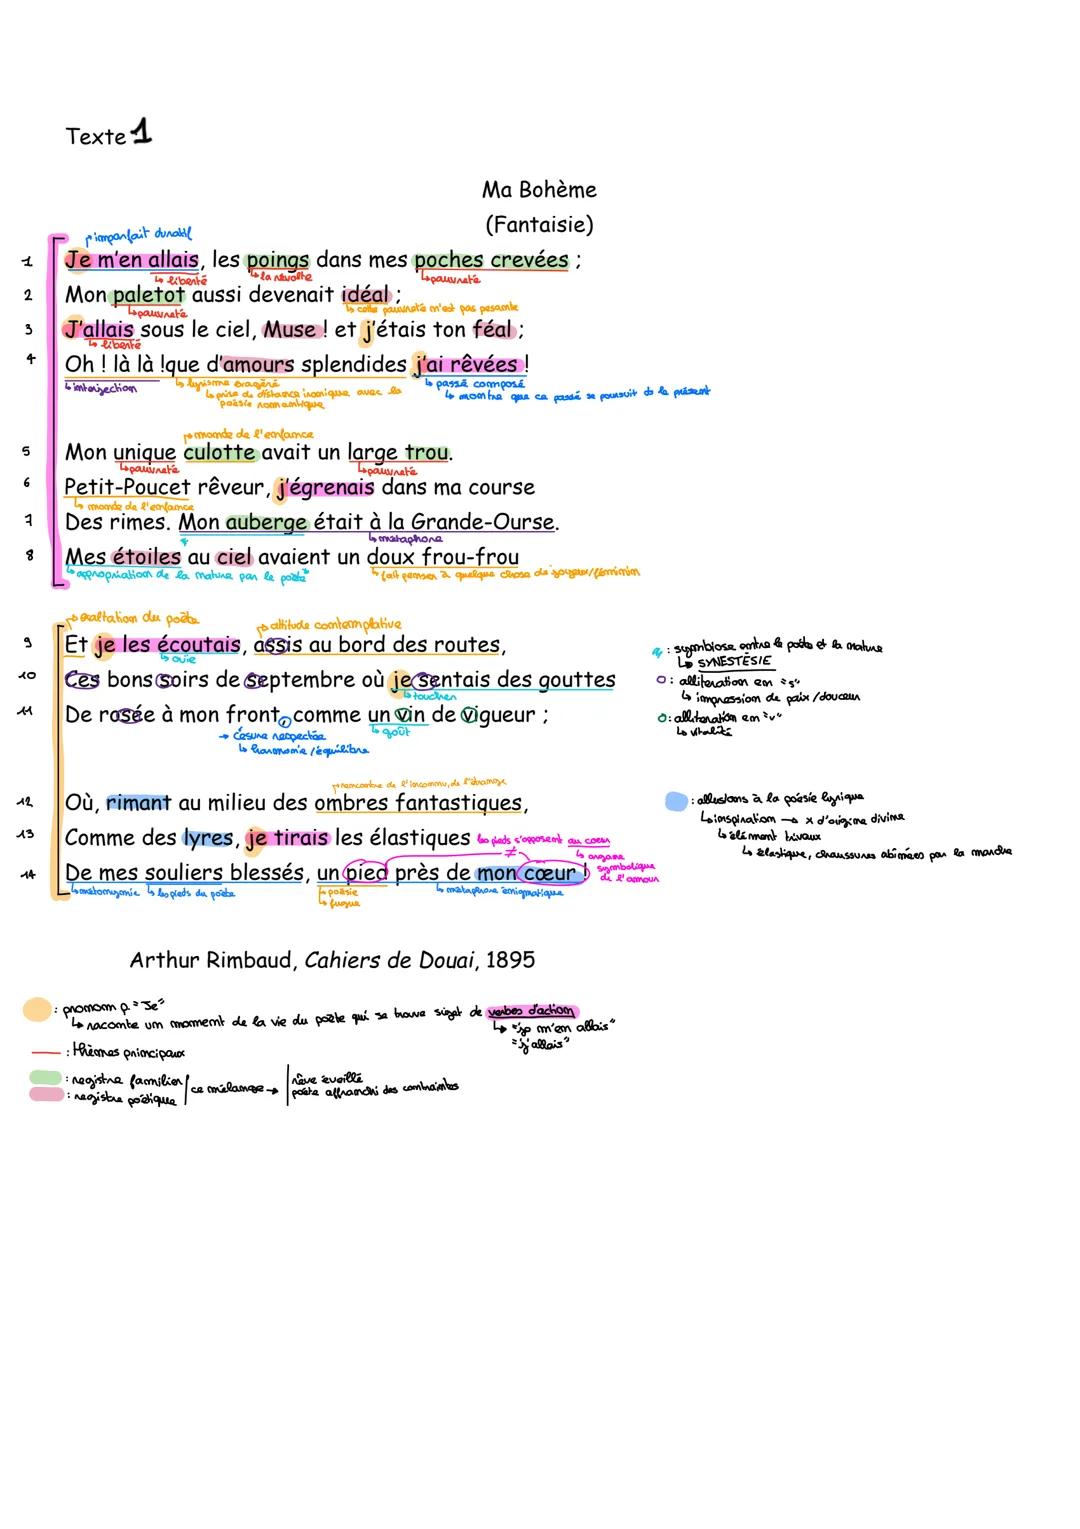 Texte 1
Ma Bohème
(Fantaisie)
imparfait duratif
1 Je m'en allais, les poings dans mes poches crevées ;
liberté la révolte pauvreté
2 Mon paletot aussi devenait idéal ;
pauvreté cette pauvreté n'est pas pesante
3 J'allais sous le ciel, Muse ! et j'étais ton féal ;
liberté
4 Oh ! là là !que d'amours splendides j'ai rêvées !
interjection lyrisme exagéré passé composé
prise de distance ironique avec la montre que ce passé se poursuit ds le présent
poésie romantique
monde de l'enfance
5 Mon unique culotte avait un large trou.
pauvreté pauvreté
6 Petit-Poucet rêveur, j'égrenais dans ma course
monde de l'enfance
7 Des rimes. Mon auberge était à la Grande-Ourse.
métaphore
8 Mes étoiles au ciel avaient un doux frou-frou
appropriation de la nature par le poète fait penser à quelque chose de joyeux/féminim
exaltation du poète attitude contemplative
9 Et je les écoutais, assis au bord des routes,
ouïe
10 Ces bons soirs de septembre où je sentais des gouttes
toucher
11 De rosée à mon front, comme un vin de vigueur ;
→ césure respectée goût
harmonie/équilibre
: symbiose entre le poète et la nature
SYNESTÉSIE
: allitération en "s"
impression de paix/douceur
: allitération en "v"
vitalité
rencontre de l'inconnu, de l'étrange
12 Où, rimant au milieu des ombres fantastiques,
13 Comme des lyres, je tirais les élastiques
les pieds s'opposent au coeur
≠ organe
symbolique
de l'amour
14 De mes souliers blessés, un pied près de mon cœur !
métonymie les pieds du poète poésie métaphore énigmatique
fugue
: allusions à la poésie lyrique
inspiration → x d'origine divine
élément triviaux
élastique, chaussures abîmées par la marche
Arthur Rimbaud, Cahiers de Douai, 1895
: pronom p. "Je"
raconte un moment de la vie du poète qui se trouve sujet de verbes d'action
"je m'en allais"
"j'allais"
: thèmes principaux
: registre familier
: registre poétique
ce mélange →
rêve éveillé
poète affranchi des contraintes